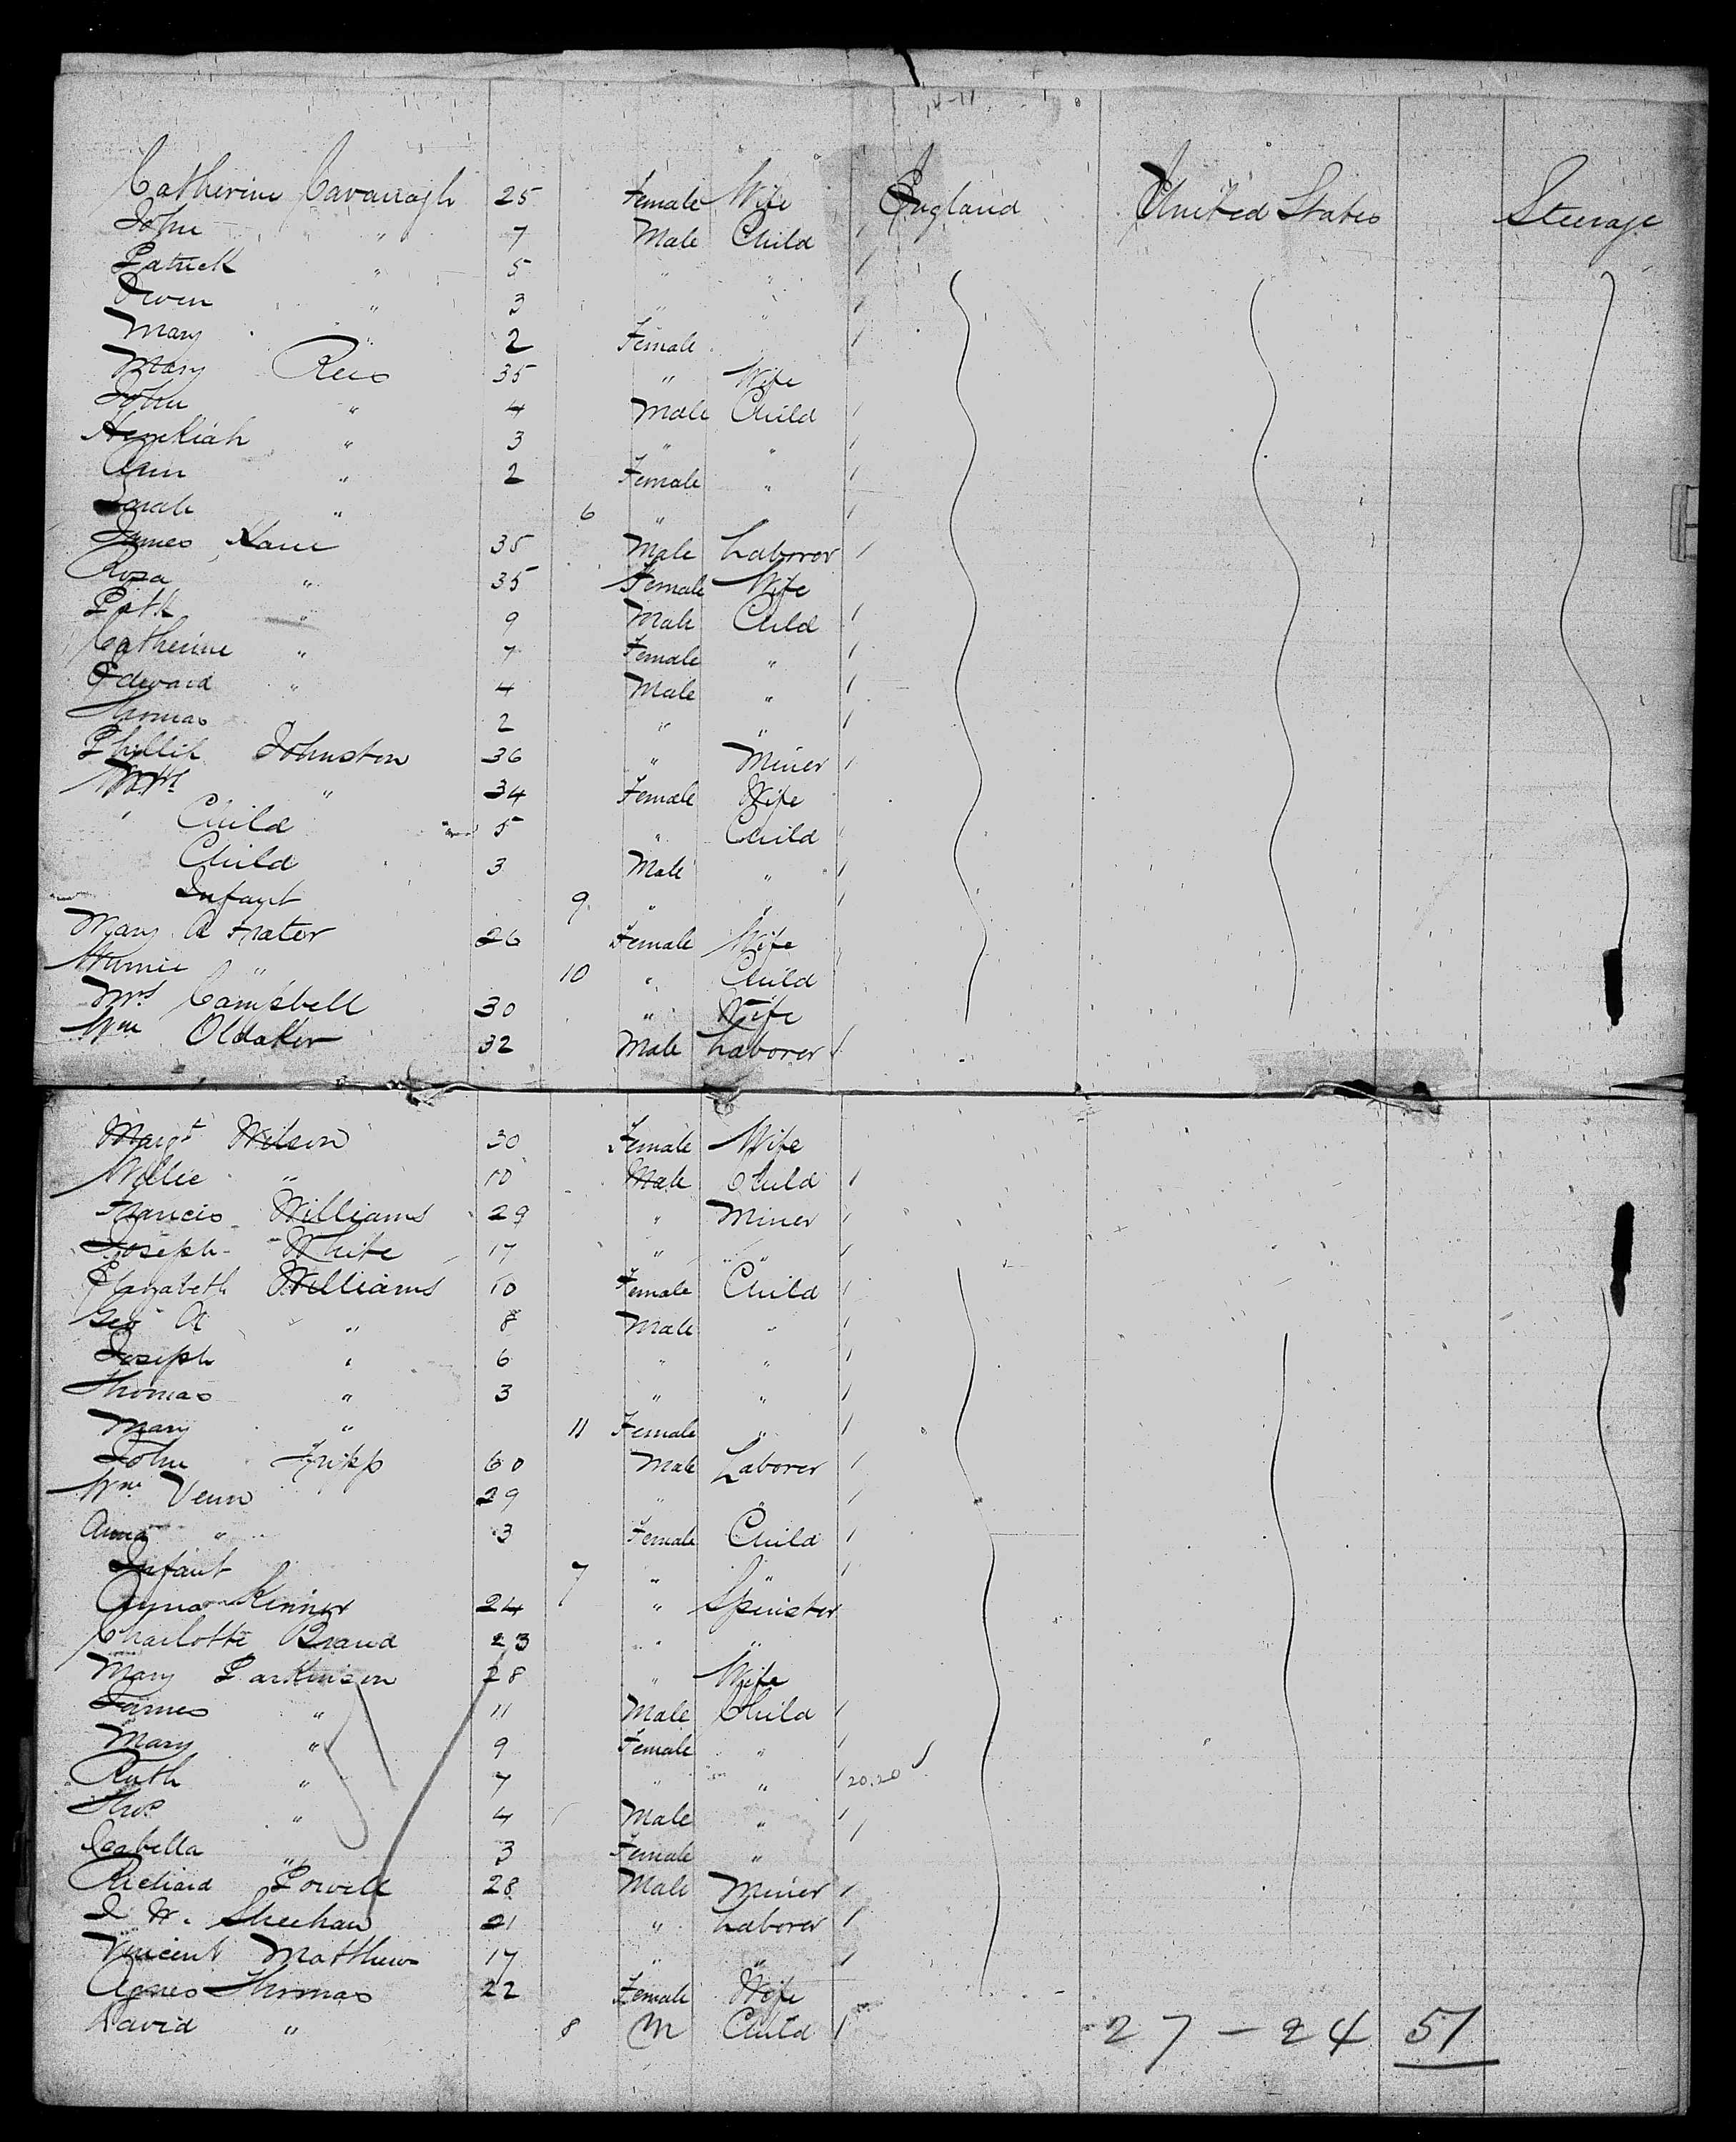 Catherine Cavanagh 25 Female Wife England United States Steerage
John " 7 Male Child
Patrick " 5 " "
Owen " 3 " "
Mary " 2 Female
Mary Rees 35 " Wife
John " 4 Male Child
Hezekiah " 3 " "
Ann " 2 Female "
Sarah " 6 "
James Kane 35 Male Laborer
Rosa " 35 Female Wife
Patk " 9 Male Child
Catherine " 7 Female "
Edward " 4 Male "
Thomas 2 " "
Phillip Johnston 36 " Miner
Mrs " 34 Female Wife
" Child 5 " Child
Child 3 Male "
Infant 9 " "
Mary A Frater 26 Female Wife
Minnie " 10 " Child
Mrs Campbell 30 " Wife
Wm Oldaker 32 Male Laborer
Margt Wilson 30 Female Wife
Willie " 10 Male Child
Francis Williams 29 " Miner
Joseph White 17 " "
Elizabeth Williams 10 Female Child
Geo A " 8 Male "
Joseph " 6 " "
Thomas " 3 " "
Mary " 11 Female "
John Tripp 60 Male Laborer
Wm Venn 29 " "
Anna " 3 Female Child
Infant 7 " "
Anna Skinner 24 " Spinster
Charlotte Brand 23 " "
Mary Parkinson 28 " Wife
James " 11 Male Child
Mary " 9 Female "
Ruth " 7 " " 20.20
Thos " 4 Male "
Isabella " 3 Female "
Richard Powell 28 Male Miner
J W. Sheehan 21 " Laborer
Vincent Matthews 17 " "
Agnes Thomas 22 Female Wife
David " 8 M Child 27 - 24 51